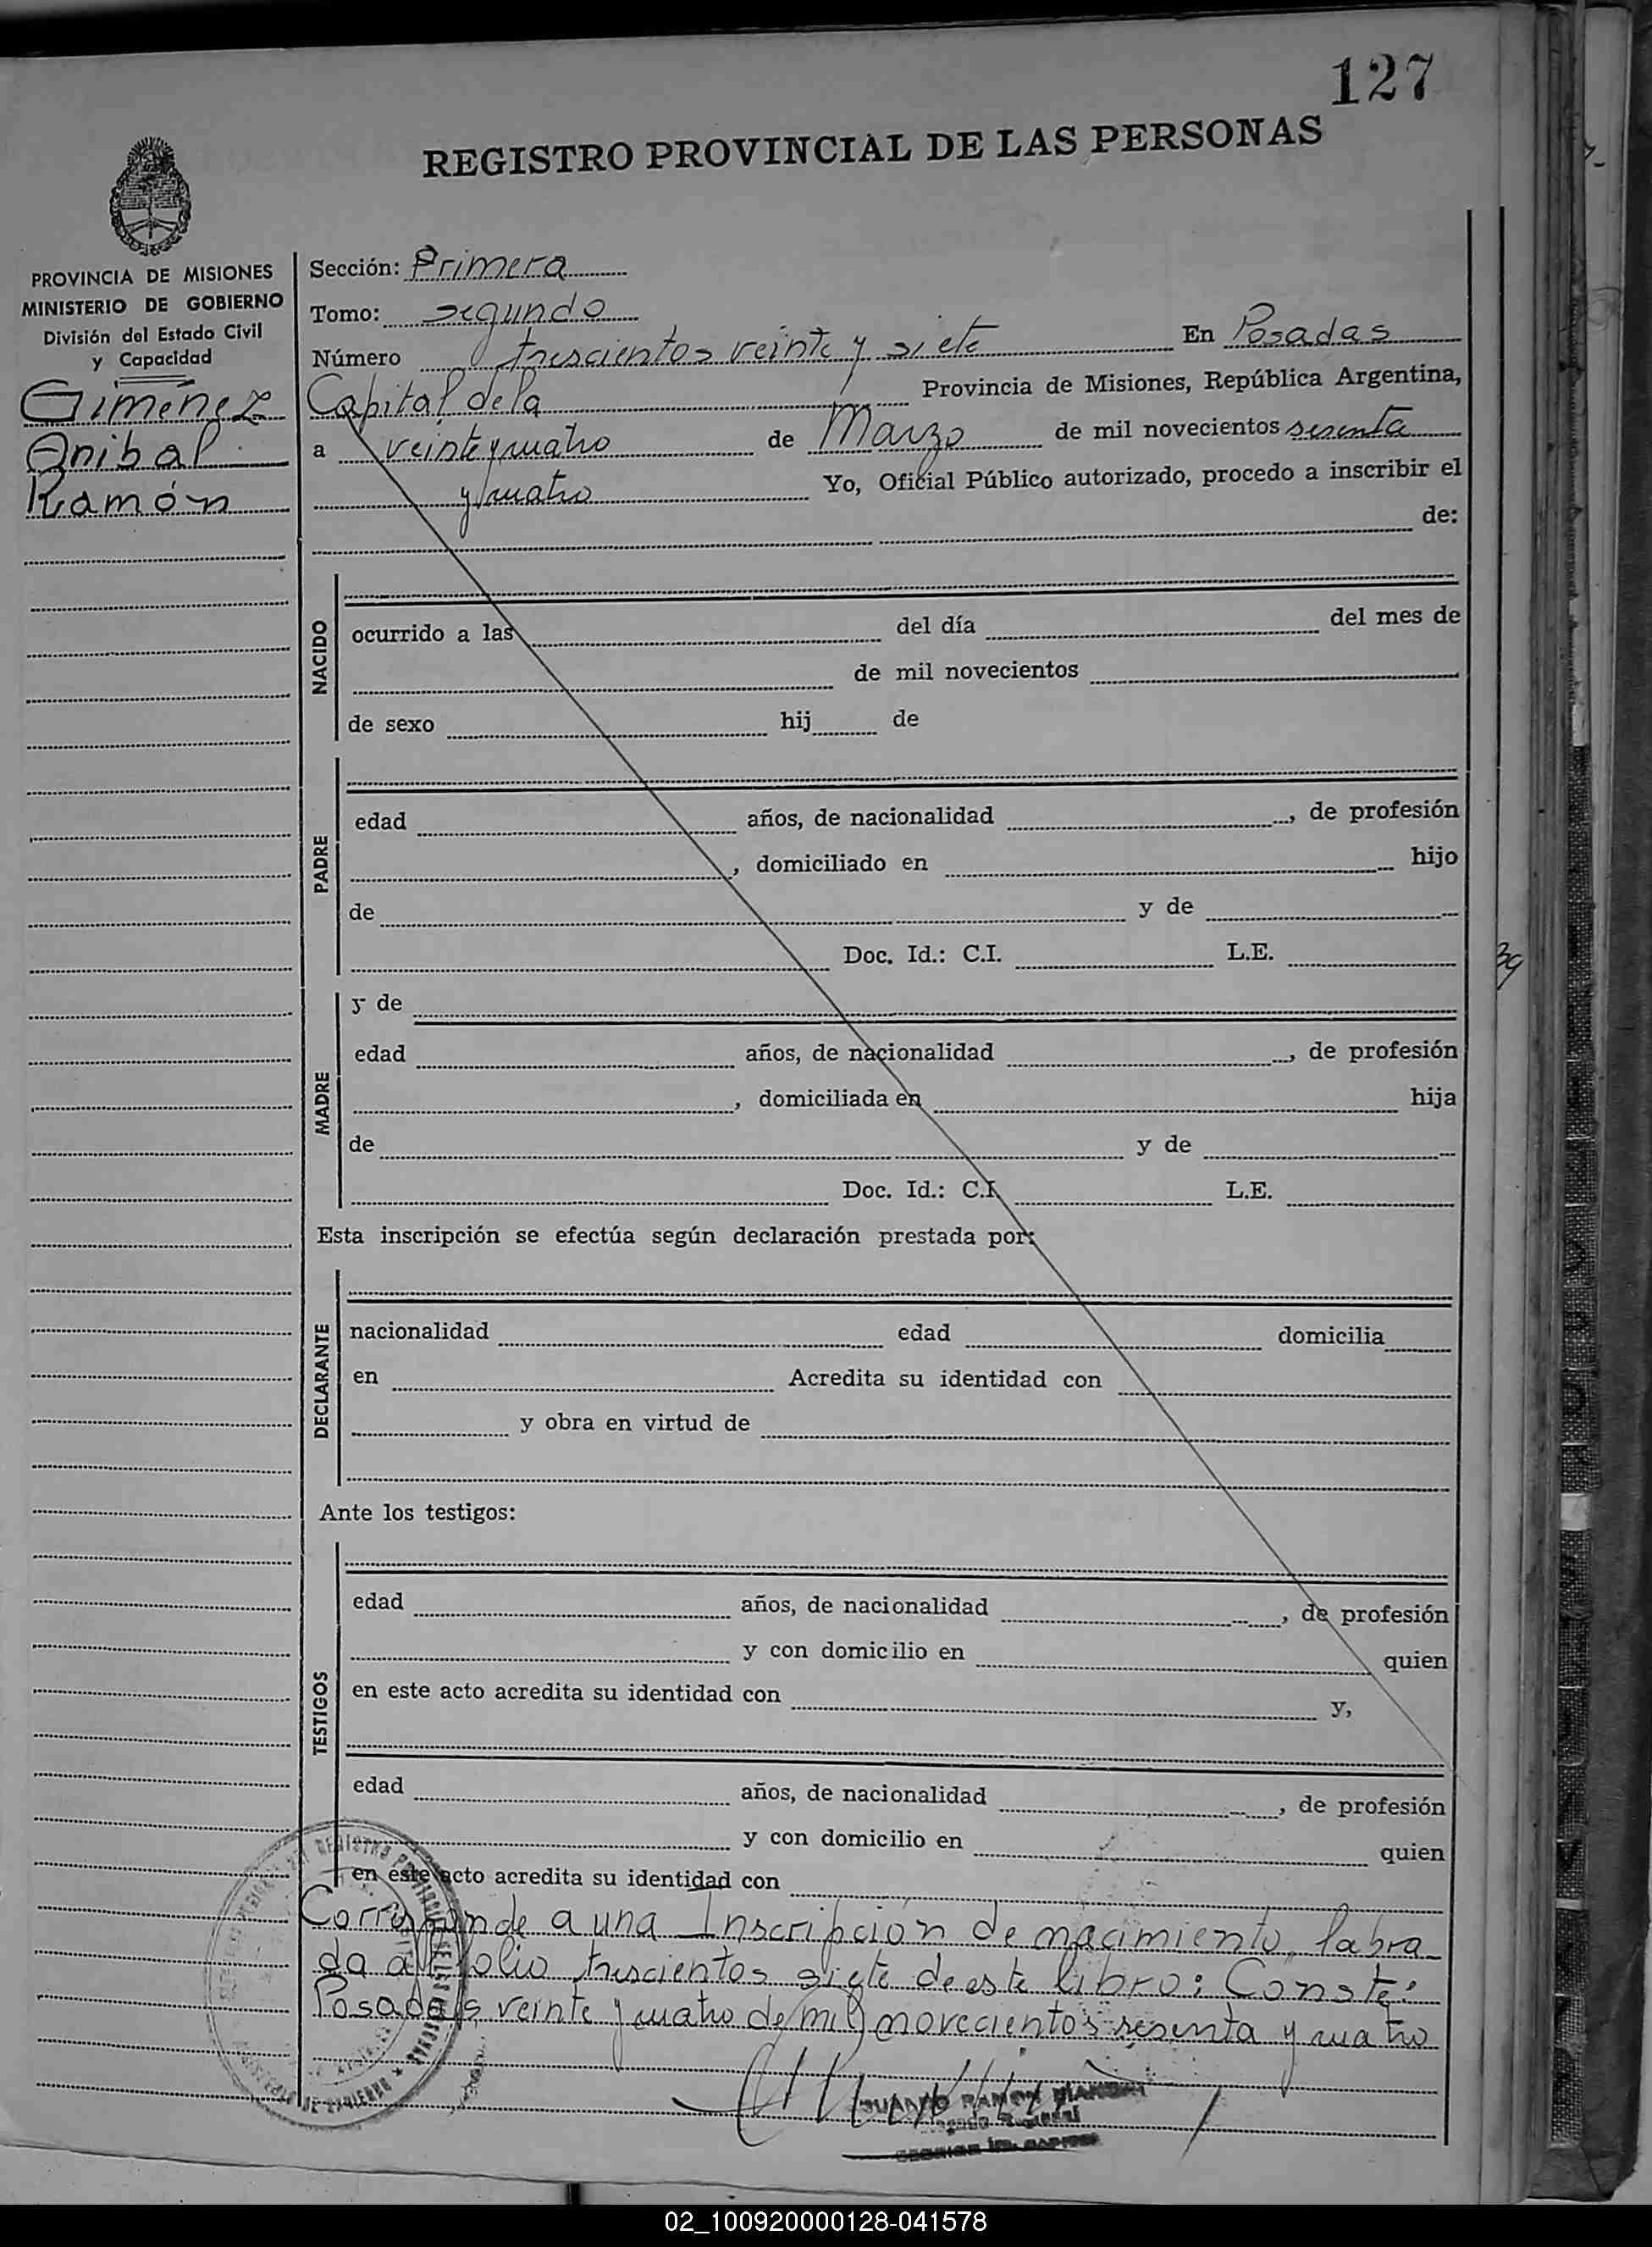 127
REGISTRO PROVINCIAL DE LAS PERSONAS
PROVINCIA DE MISIONES
MINISTERIO DE GOBIERNO
División del Estado Civil
y Capacidad
Giménez
Anibal
Ramón
Sección: Primera
Tomo: segundo
Número trescientos veinte y siete En Posadas
Capital de la Provincia de Misiones, República Argentina,
a veinte y cuatro de Marzo de mil novecientos sesenta
y cuatro Yo, Oficial Público autorizado, procedo a inscribir el
de:
NACIDO
ocurrido a las del día del mes de
de mil novecientos
de sexo hij de
PADRE
edad años, de nacionalidad , de profesión
, domiciliado en hijo
de y de
Doc. Id.: C.I. L.E.
39
MADRE
y de
edad años, de nacionalidad , de profesión
, domiciliada en hija
de y de
Doc. Id.: C.I. L.E.
Esta inscripción se efectúa según declaración prestada por:
DECLARANTE
nacionalidad edad domicilia
en Acredita su identidad con
y obra en virtud de
Ante los testigos:
TESTIGOS
edad años, de nacionalidad , de profesión
y con domicilio en quien
en este acto acredita su identidad con y,
edad años, de nacionalidad , de profesión
y con domicilio en quien
en este acto acredita su identidad con
Corresponde a una Inscripción de nacimiento, labra-
da al folio trescientos siete de este libro: Conste:
Posadas, veinte y cuatro de mil novecientos sesenta y cuatro
RAMON
02_100920000128-041578